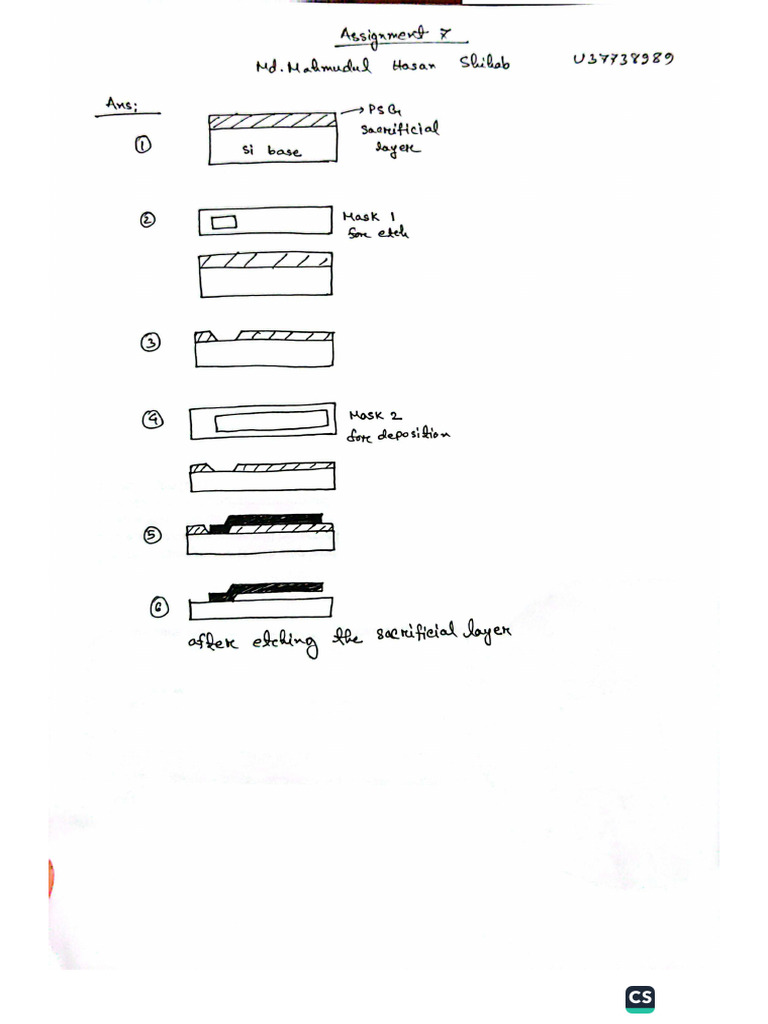 Assignment 7
Md. Mahmudul Hasan Shihab U37738989
Ans:
PSG
sacrificial
layer
①
Si base
②
Mask 1
for etch
③
④
Mask 2
for deposition
⑤
⑥
after etching the sacrificial layer
CS